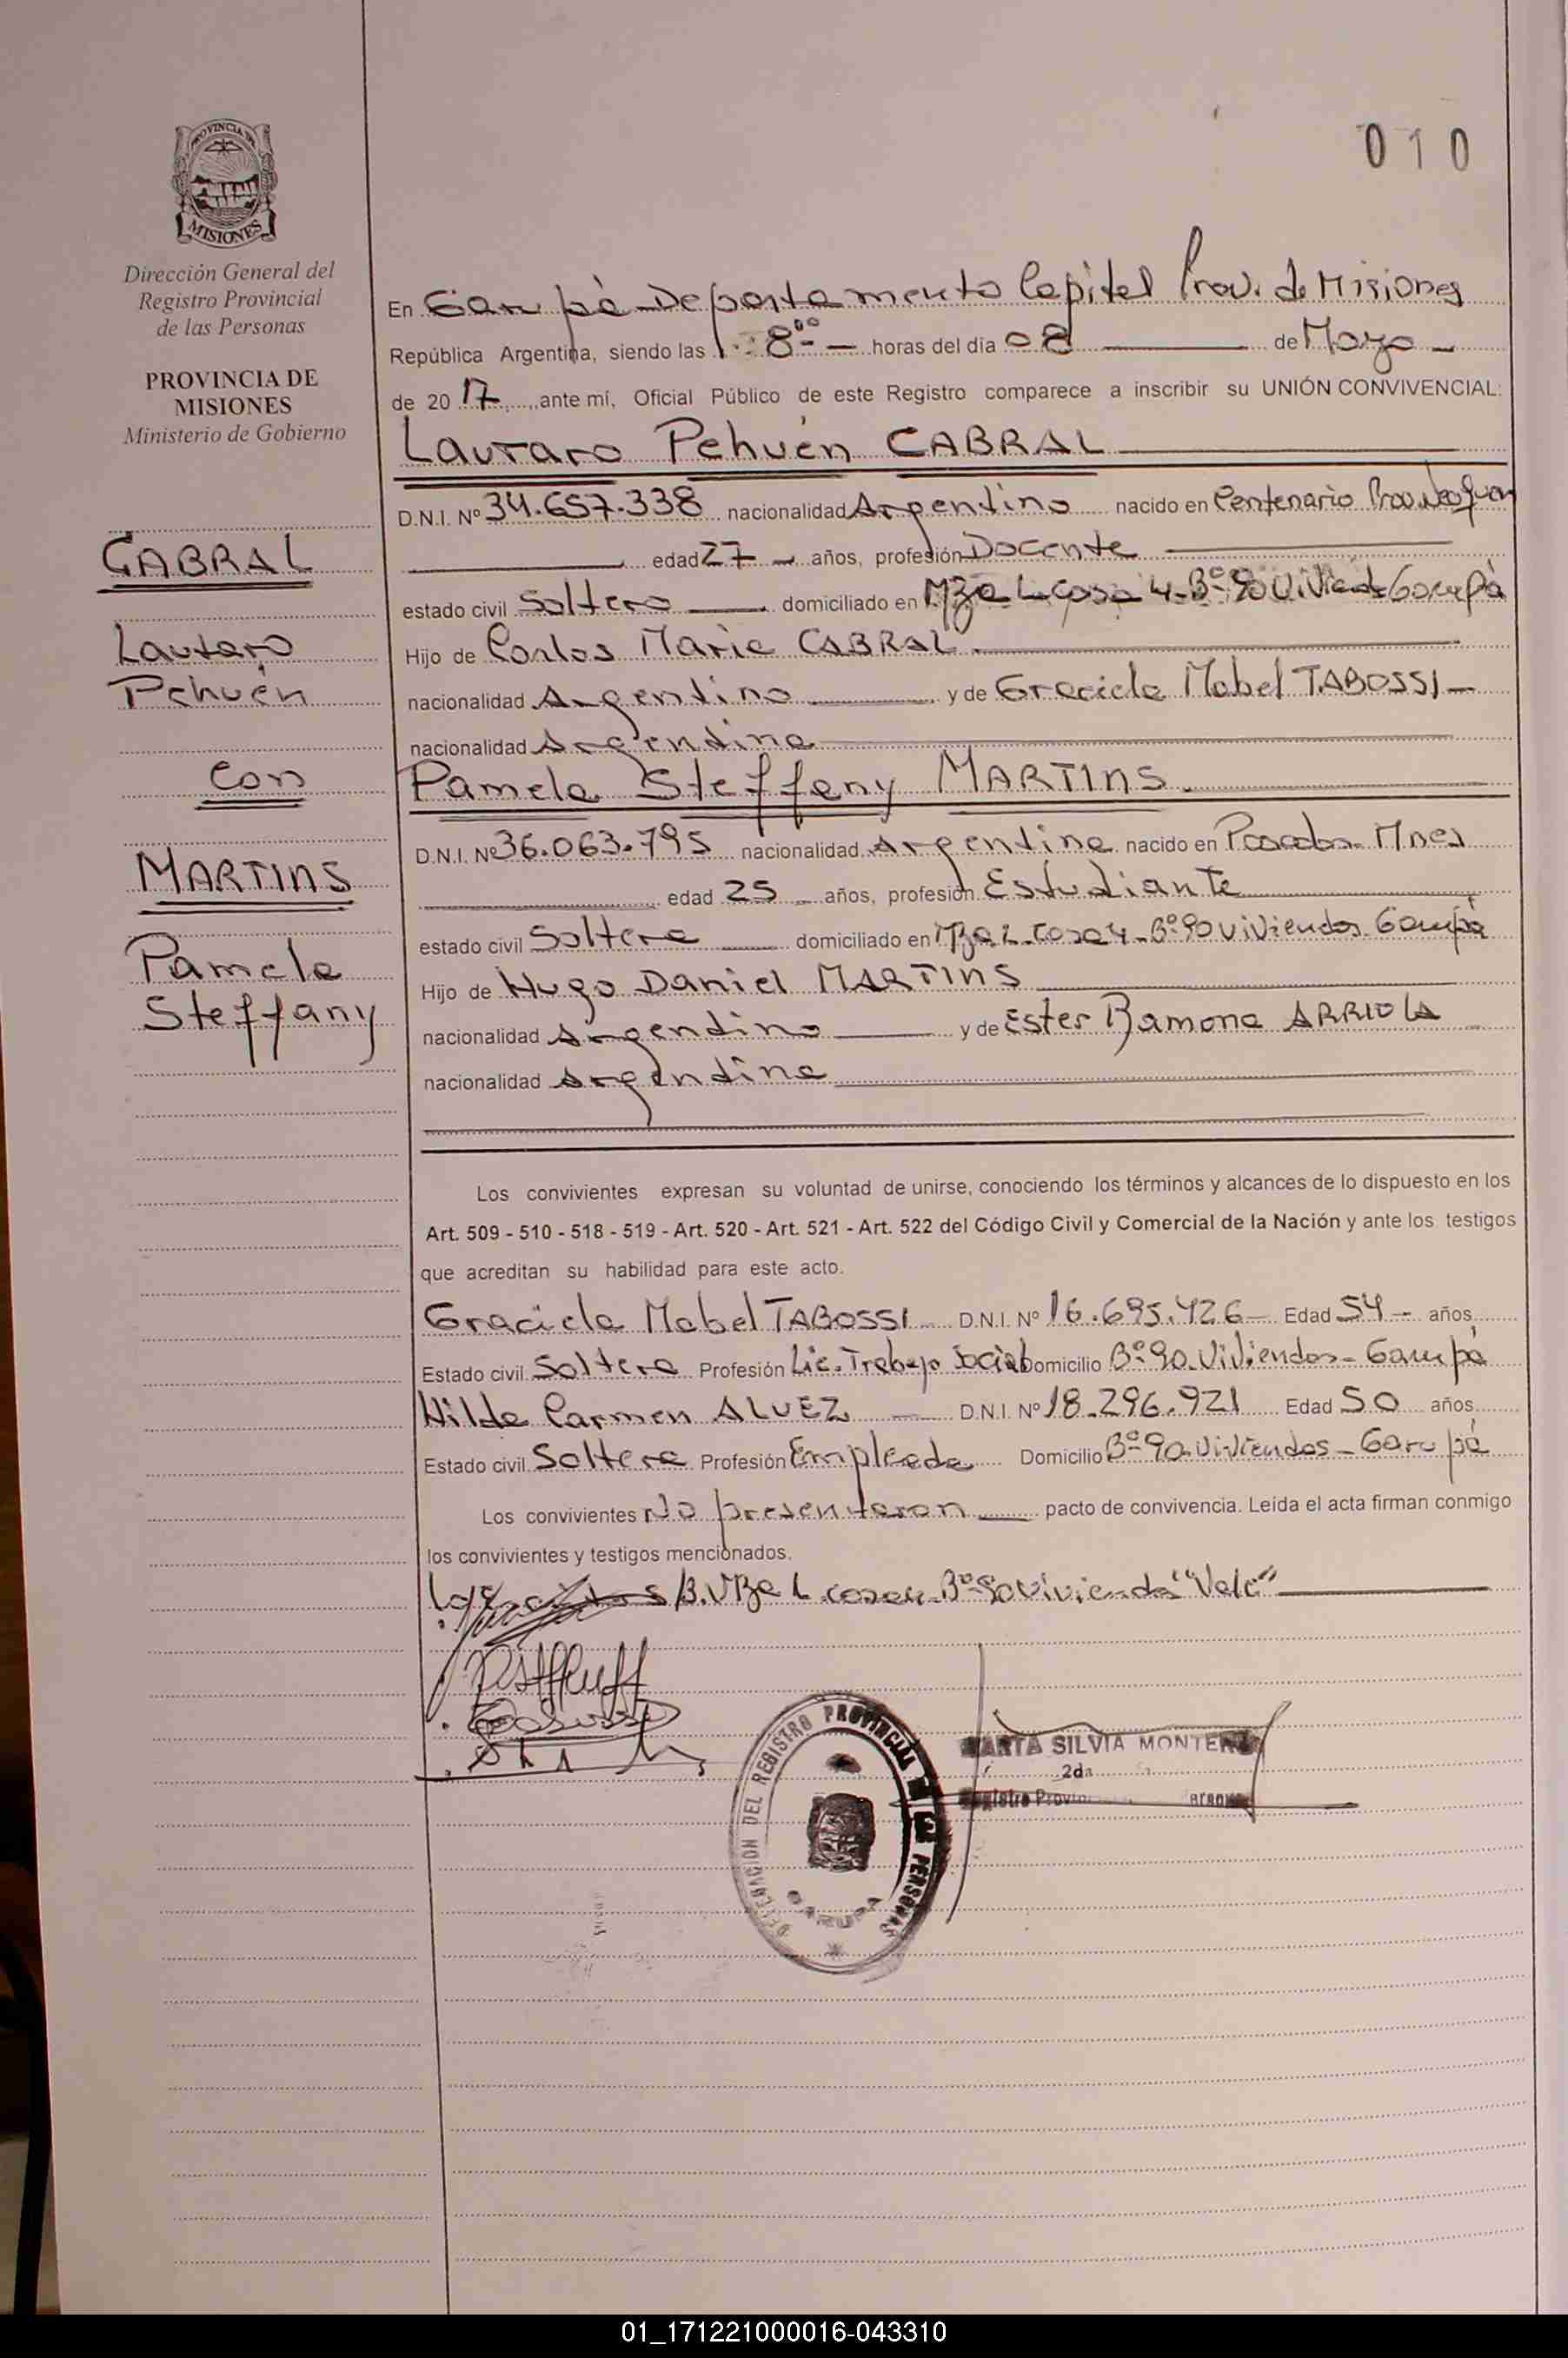 010
PROVINCIA DE
MISIONES
Dirección General del
Registro Provincial
de las Personas
PROVINCIA DE
MISIONES
Ministerio de Gobierno
CABRAL
Lautaro
Pehuén
Con
MARTINS
Pamela
Steffany
En Garupá Departamento Capital Prov. de Misiones
República Argentina, siendo las 8°° horas del día 08 de Mayo
de 2017 ante mí, Oficial Público de este Registro comparece a inscribir su UNIÓN CONVIVENCIAL:
Lautaro Pehuén CABRAL
D.N.I. Nº 34.657.338 nacionalidad Argentino nacido en Centenario Prov. Neuquen
edad 27 años, profesión Docente
estado civil Soltero domiciliado en Mza L casa 4 Bº 90 Viviend Garupá
Hijo de Carlos Maria CABRAL
nacionalidad Argentino y de Graciela Mabel TABOSSI
nacionalidad Argentina
Pamela Steffany MARTINS
D.N.I. Nº 36.063.795 nacionalidad Argentina nacido en Posadas Mnes
edad 25 años, profesión Estudiante
estado civil Soltera domiciliado en Mza L casa 4 Bº 90 viviendas Garupá
Hijo de Hugo Daniel MARTINS
nacionalidad Argentino y de Ester Ramona ARRIOLA
nacionalidad Argentina
Los convivientes expresan su voluntad de unirse, conociendo los términos y alcances de lo dispuesto en los
Art. 509 - 510 - 518 - 519 - Art. 520 - Art. 521 - Art. 522 del Código Civil y Comercial de la Nación y ante los testigos
que acreditan su habilidad para este acto.
Graciela Mabel TABOSSI D.N.I. Nº 16.695.426 Edad 54 años
Estado civil Soltera Profesión Lic. Trabajo Social Domicilio Bº 90 Viviendas - Garupá
Hilda Carmen ALVEZ D.N.I. Nº 18.296.921 Edad 50 años
Estado civil Soltera Profesión Empleada Domicilio Bº 90 viviendas - Garupá
Los convivientes No presentaron pacto de convivencia. Leída el acta firman conmigo
los convivientes y testigos mencionados.
S/B. Mza L casa 4 Bº 90 Vivienda "Vale"
DELEGACION DEL REGISTRO PROVINCIAL DE LAS PERSONAS
GARUPA
MARTA SILVIA MONTERO
2da
Registro Provin
01_171221000016-043310